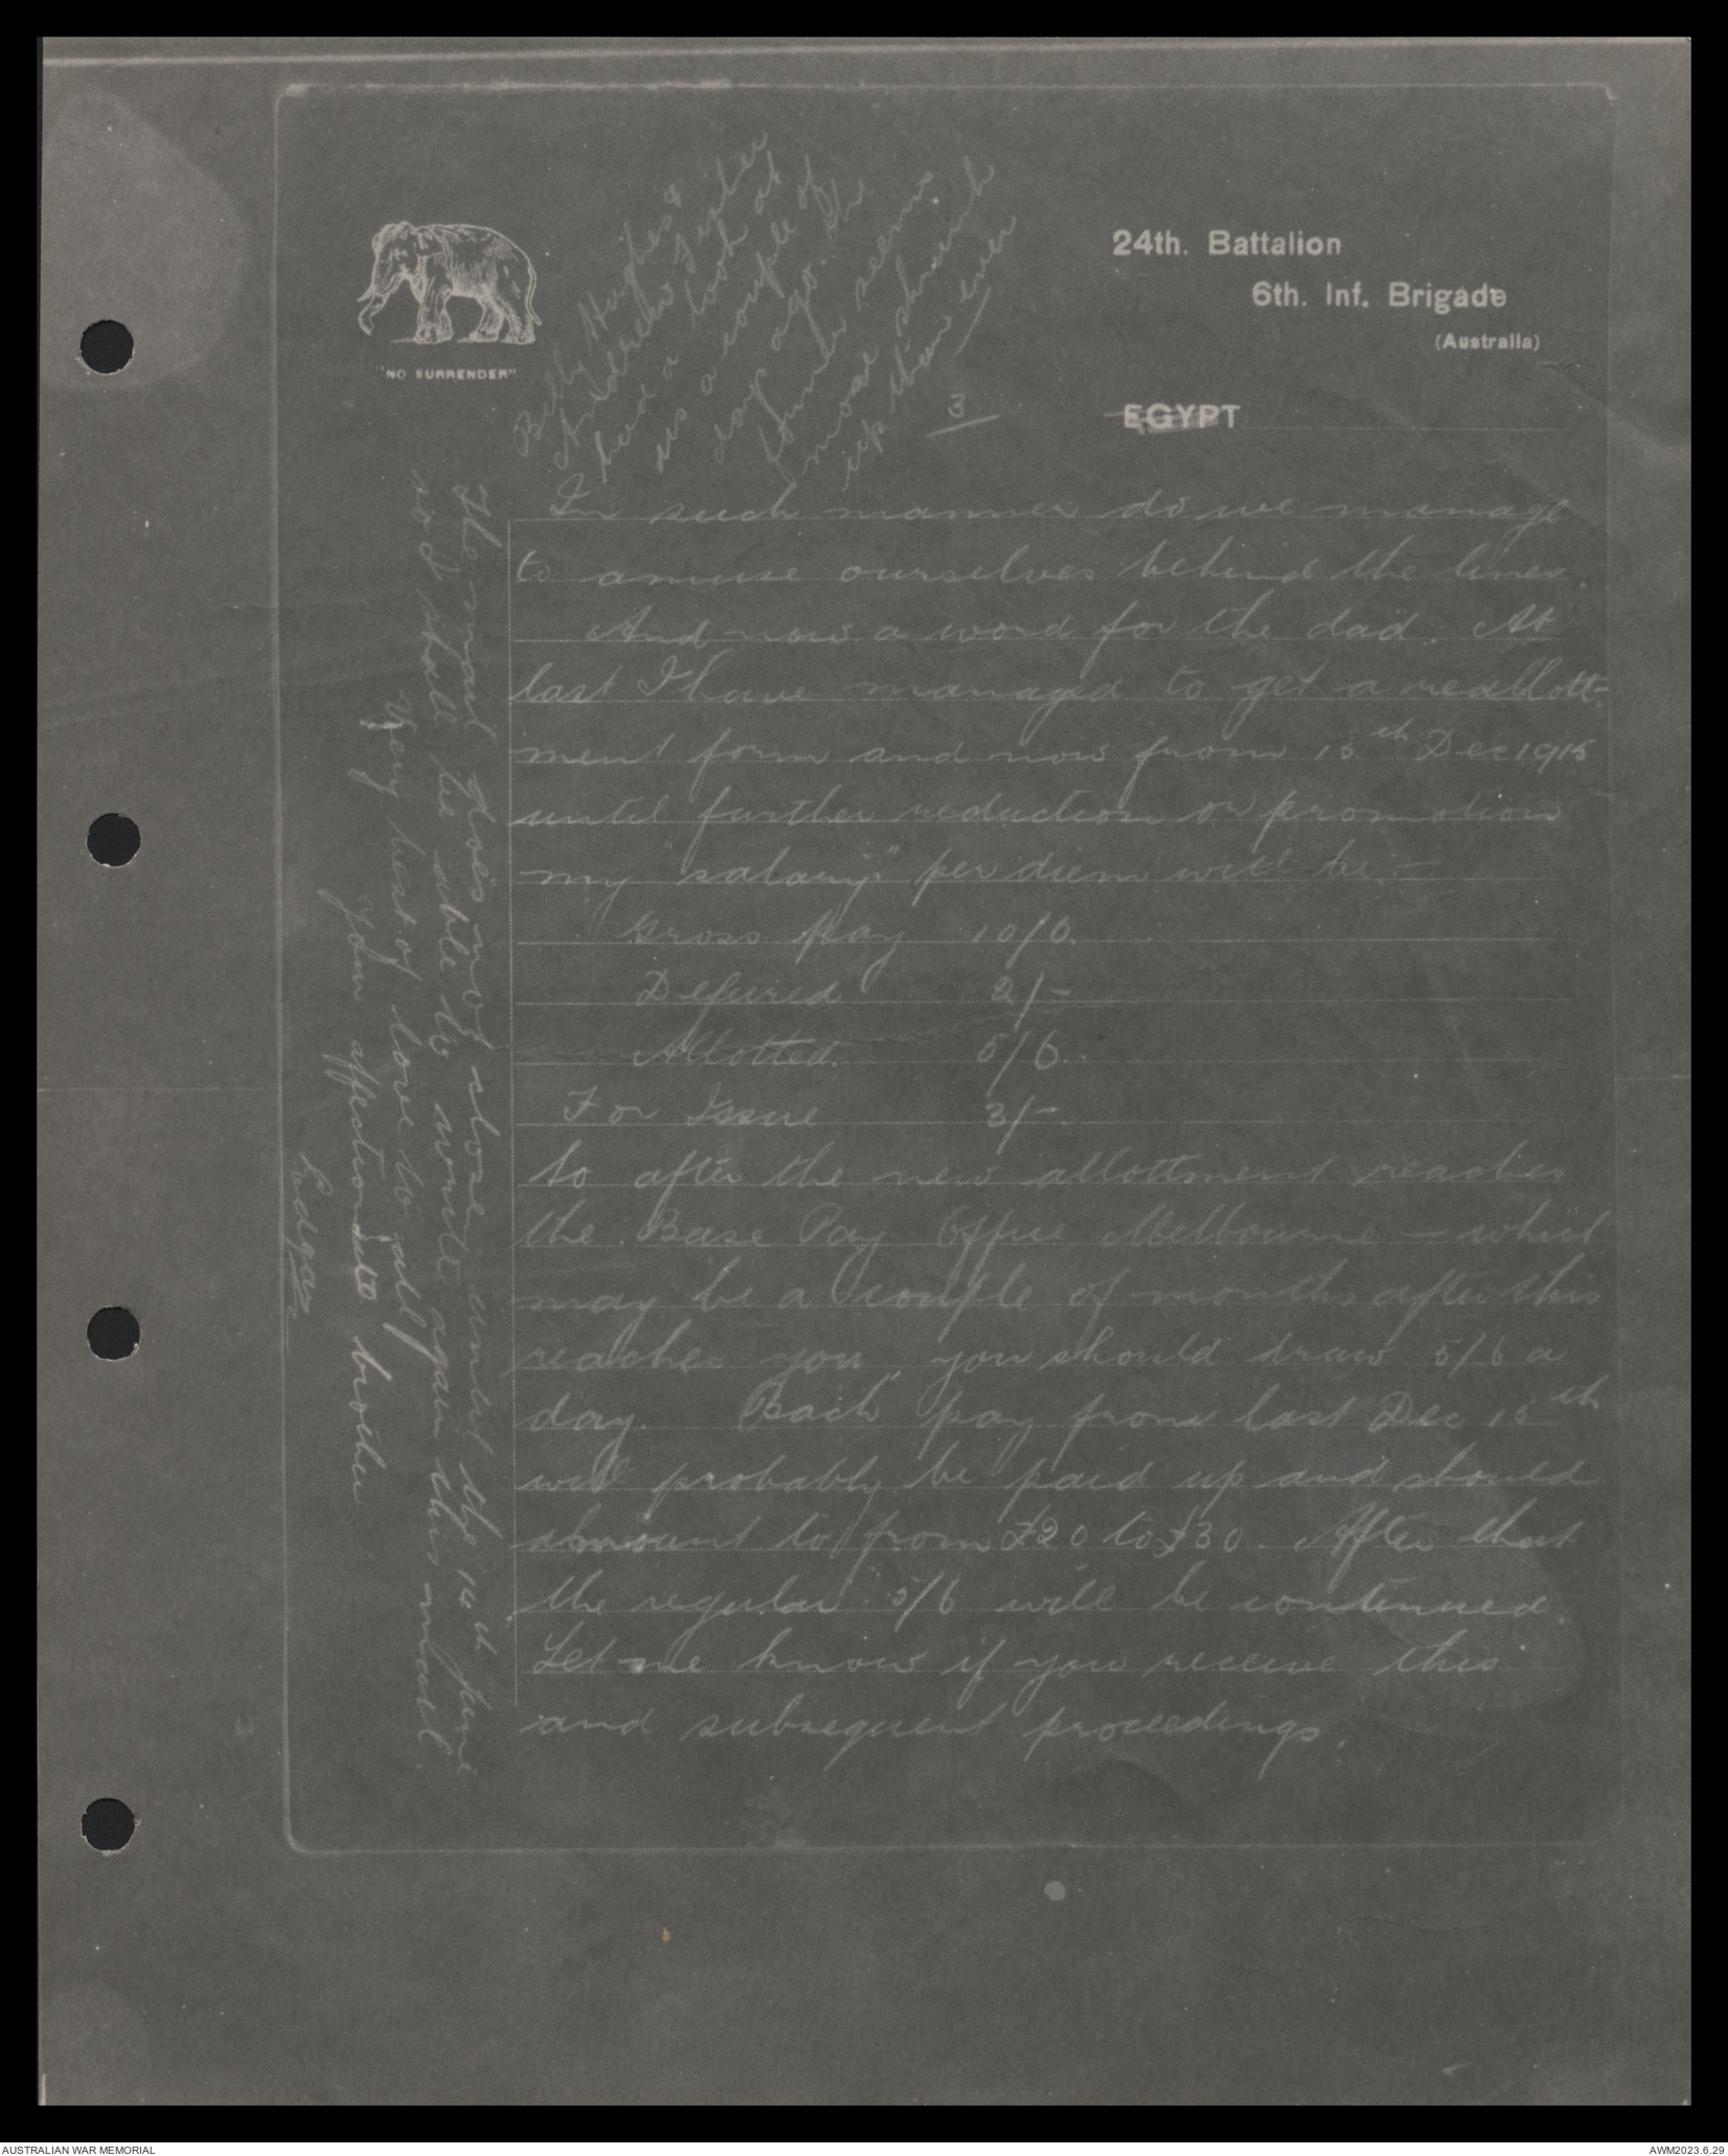 24th. Battalion
6th. Inf. Brigade
(Australia)
"NO SURRENDER"
EGYPT
3
Billy Hughes &
Andrew Fisher
had a look at
us a couple of
days ago. The
former seems
more shrunk
up than ever
In such manner do we manage
to amuse ourselves behind the lines.
And now a word for the dad. At
last I have managed to get a reallott-
ment form and now from 15th Dec 1915
until further reduction or promotion
my "salary" per diem will be:-
Gross Pay 10/6.
Deferred 2/-
Allotted. 5/6.
For Issue 3/-
So after the new allottment reaches
the Base Pay Office Melbourne - which
may be a couple of months after this
reaches you, you should draw 5/6 a
day. Back pay from last Dec 15th
will probably be paid up and should
amount to from £20 to £30. After that
the regular 5/6 will be continued.
Let me know if you receive this
and subsequent proceedings.
The mail does not close until the
so I shall be able to write again this mail.
Very best of love to all
Your affectionate brother
Edgar
AUSTRALIAN WAR MEMORIAL
AWM2023.6.29